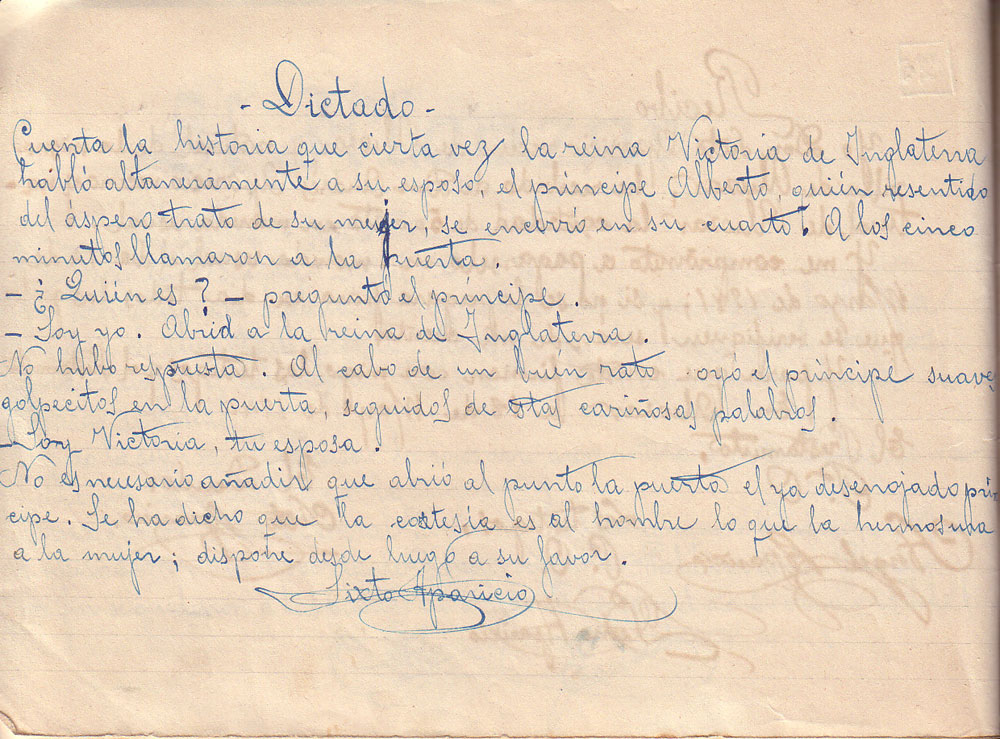 - Dictado -
Cuenta la historia que cierta vez la reina Victoria de Inglaterra
habló altaneramente a su esposo, el príncipe Alberto, quién resentido
del áspero trato de su mujer, se encerró en su cuarto. A los cinco
minutos llamaron a la puerta.
- ¿Quién es? - pregunto el príncipe.
- Soy yo. Abrid a la reina de Inglaterra.
No hubo respuesta. Al cabo de un bién rato oyó el príncipe suaves
golpecitos en la puerta, seguidos de estas cariñosas palabras.
- Soy Victoria, tu esposa.
No es necesario añadir que abrió al punto la puerta el ya desenojado prín
cipe. Se ha dicho que la cortesía es al hombre lo que la hermosura
a la mujer; dispone desde luego a su favor.
Sixto Aparicio